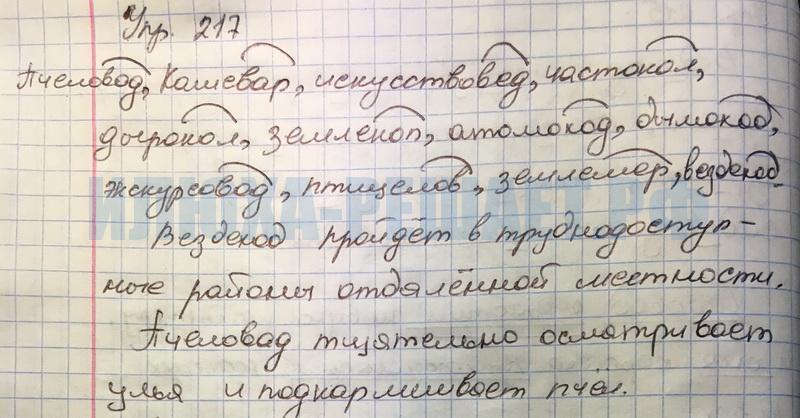 Упр. 217
Пчеловод, Кашевар, искусствовед, частокол,
дырокол, землекоп, атомоход, дымоход,
экскурсовод, птицелов, землемер, вездеход.
Вездеход пройдёт в труднодоступ-
ные районы отдалённой местности.
Пчеловад тщательно осматривает
улья и подкармливает пчёл.